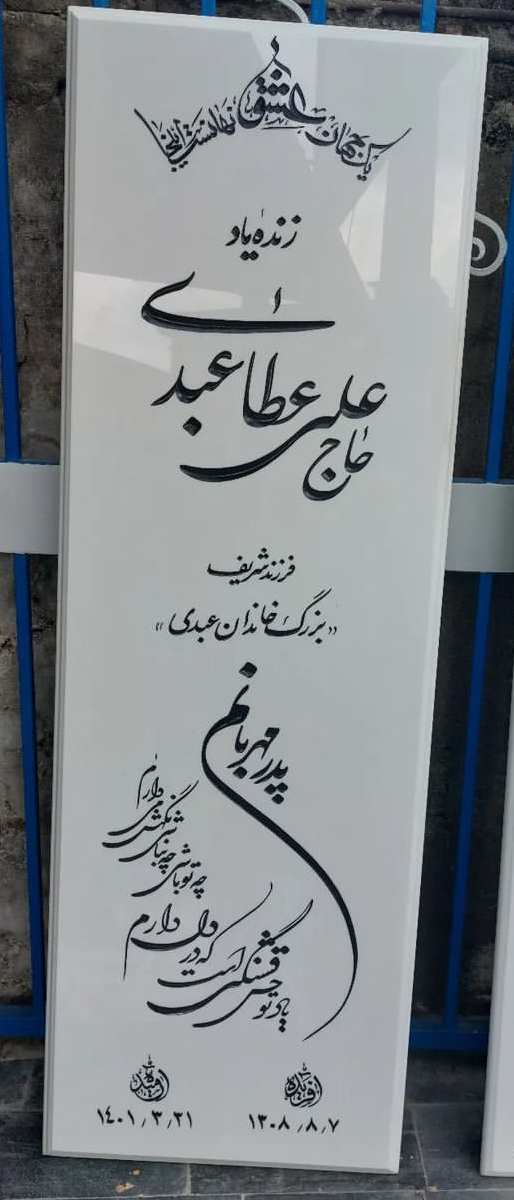 یک جهان عشق نهانست اینجا
زنده یاد
حاج علی عطا عبدی
فرزند شریف
«بزرگ خاندان عبدی»
پدر مهربانم
یاد تو حس قشنگی است که در دل دارم
چه تو باشی چه نباشی نگهش می دارم
آفریده
۱۳۰۸/۸/۷
آرمیده
۱۴۰۱/۳/۲۱